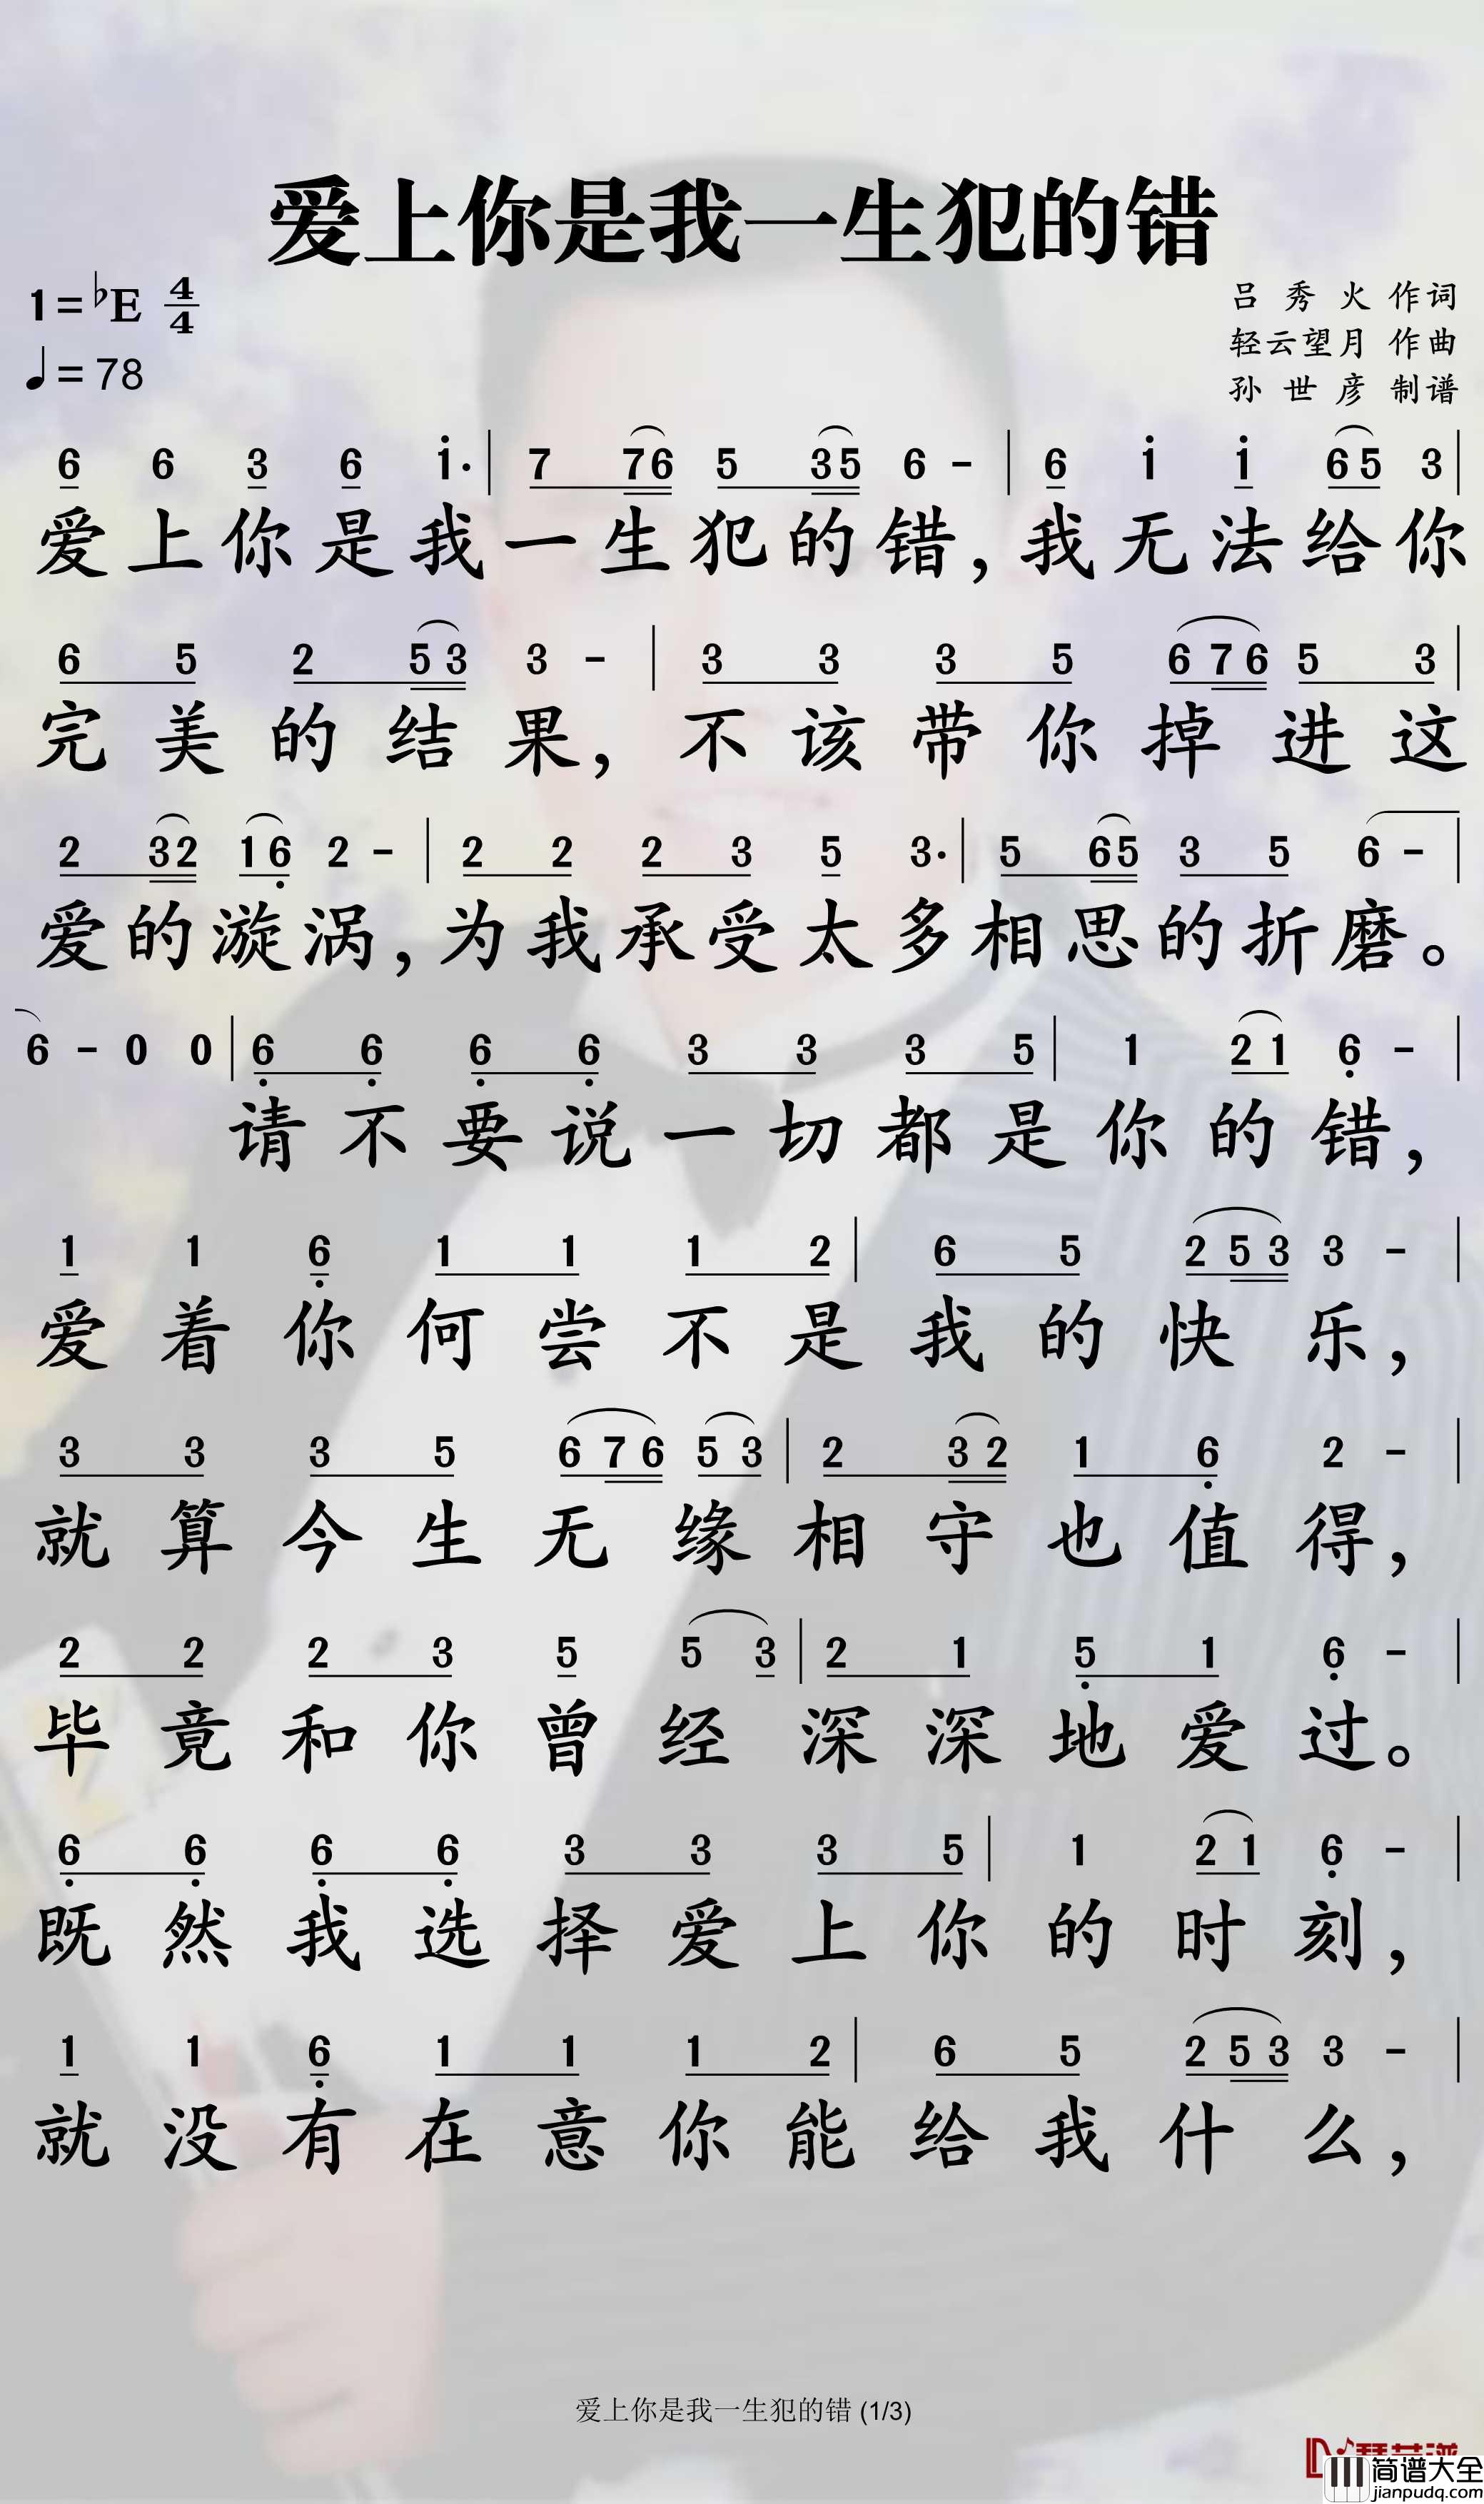 爱上你是我一生犯的错
1=♭E 4/4
吕秀火 作词
轻云望月 作曲
♩=78
孙世彦 制谱
6 6 3 6 i· | 7 76 5 35 6 - | 6 i i 65 3 |
爱上你是我一生犯的错,我无法给你
6 5 2 53 3 - | 3 3 3 5 676 5 3 |
完美的结果,不该带你掉进这
2 32 16 2 - | 2 2 2 3 5 3· | 5 65 3 5 6 - |
爱的漩涡,为我承受太多相思的折磨。
6 - 0 0 | 6 6 6 6 3 3 3 5 | 1 21 6 - |
请不要说一切都是你的错,
1 1 6 1 1 1 2 | 6 5 253 3 - |
爱着你何尝不是我的快乐,
3 3 3 5 676 53 | 2 32 1 6 2 - |
就算今生无缘相守也值得,
2 2 2 3 5 5 3 | 2 1 5 1 6 - |
毕竟和你曾经深深地爱过。
6 6 6 6 3 3 3 5 | 1 21 6 - |
既然我选择爱上你的时刻,
1 1 6 1 1 1 2 | 6 5 253 3 - |
就没有在意你能给我什么,
爱上你是我一生犯的错 (1/3)
简谱大全
jianpudq.com